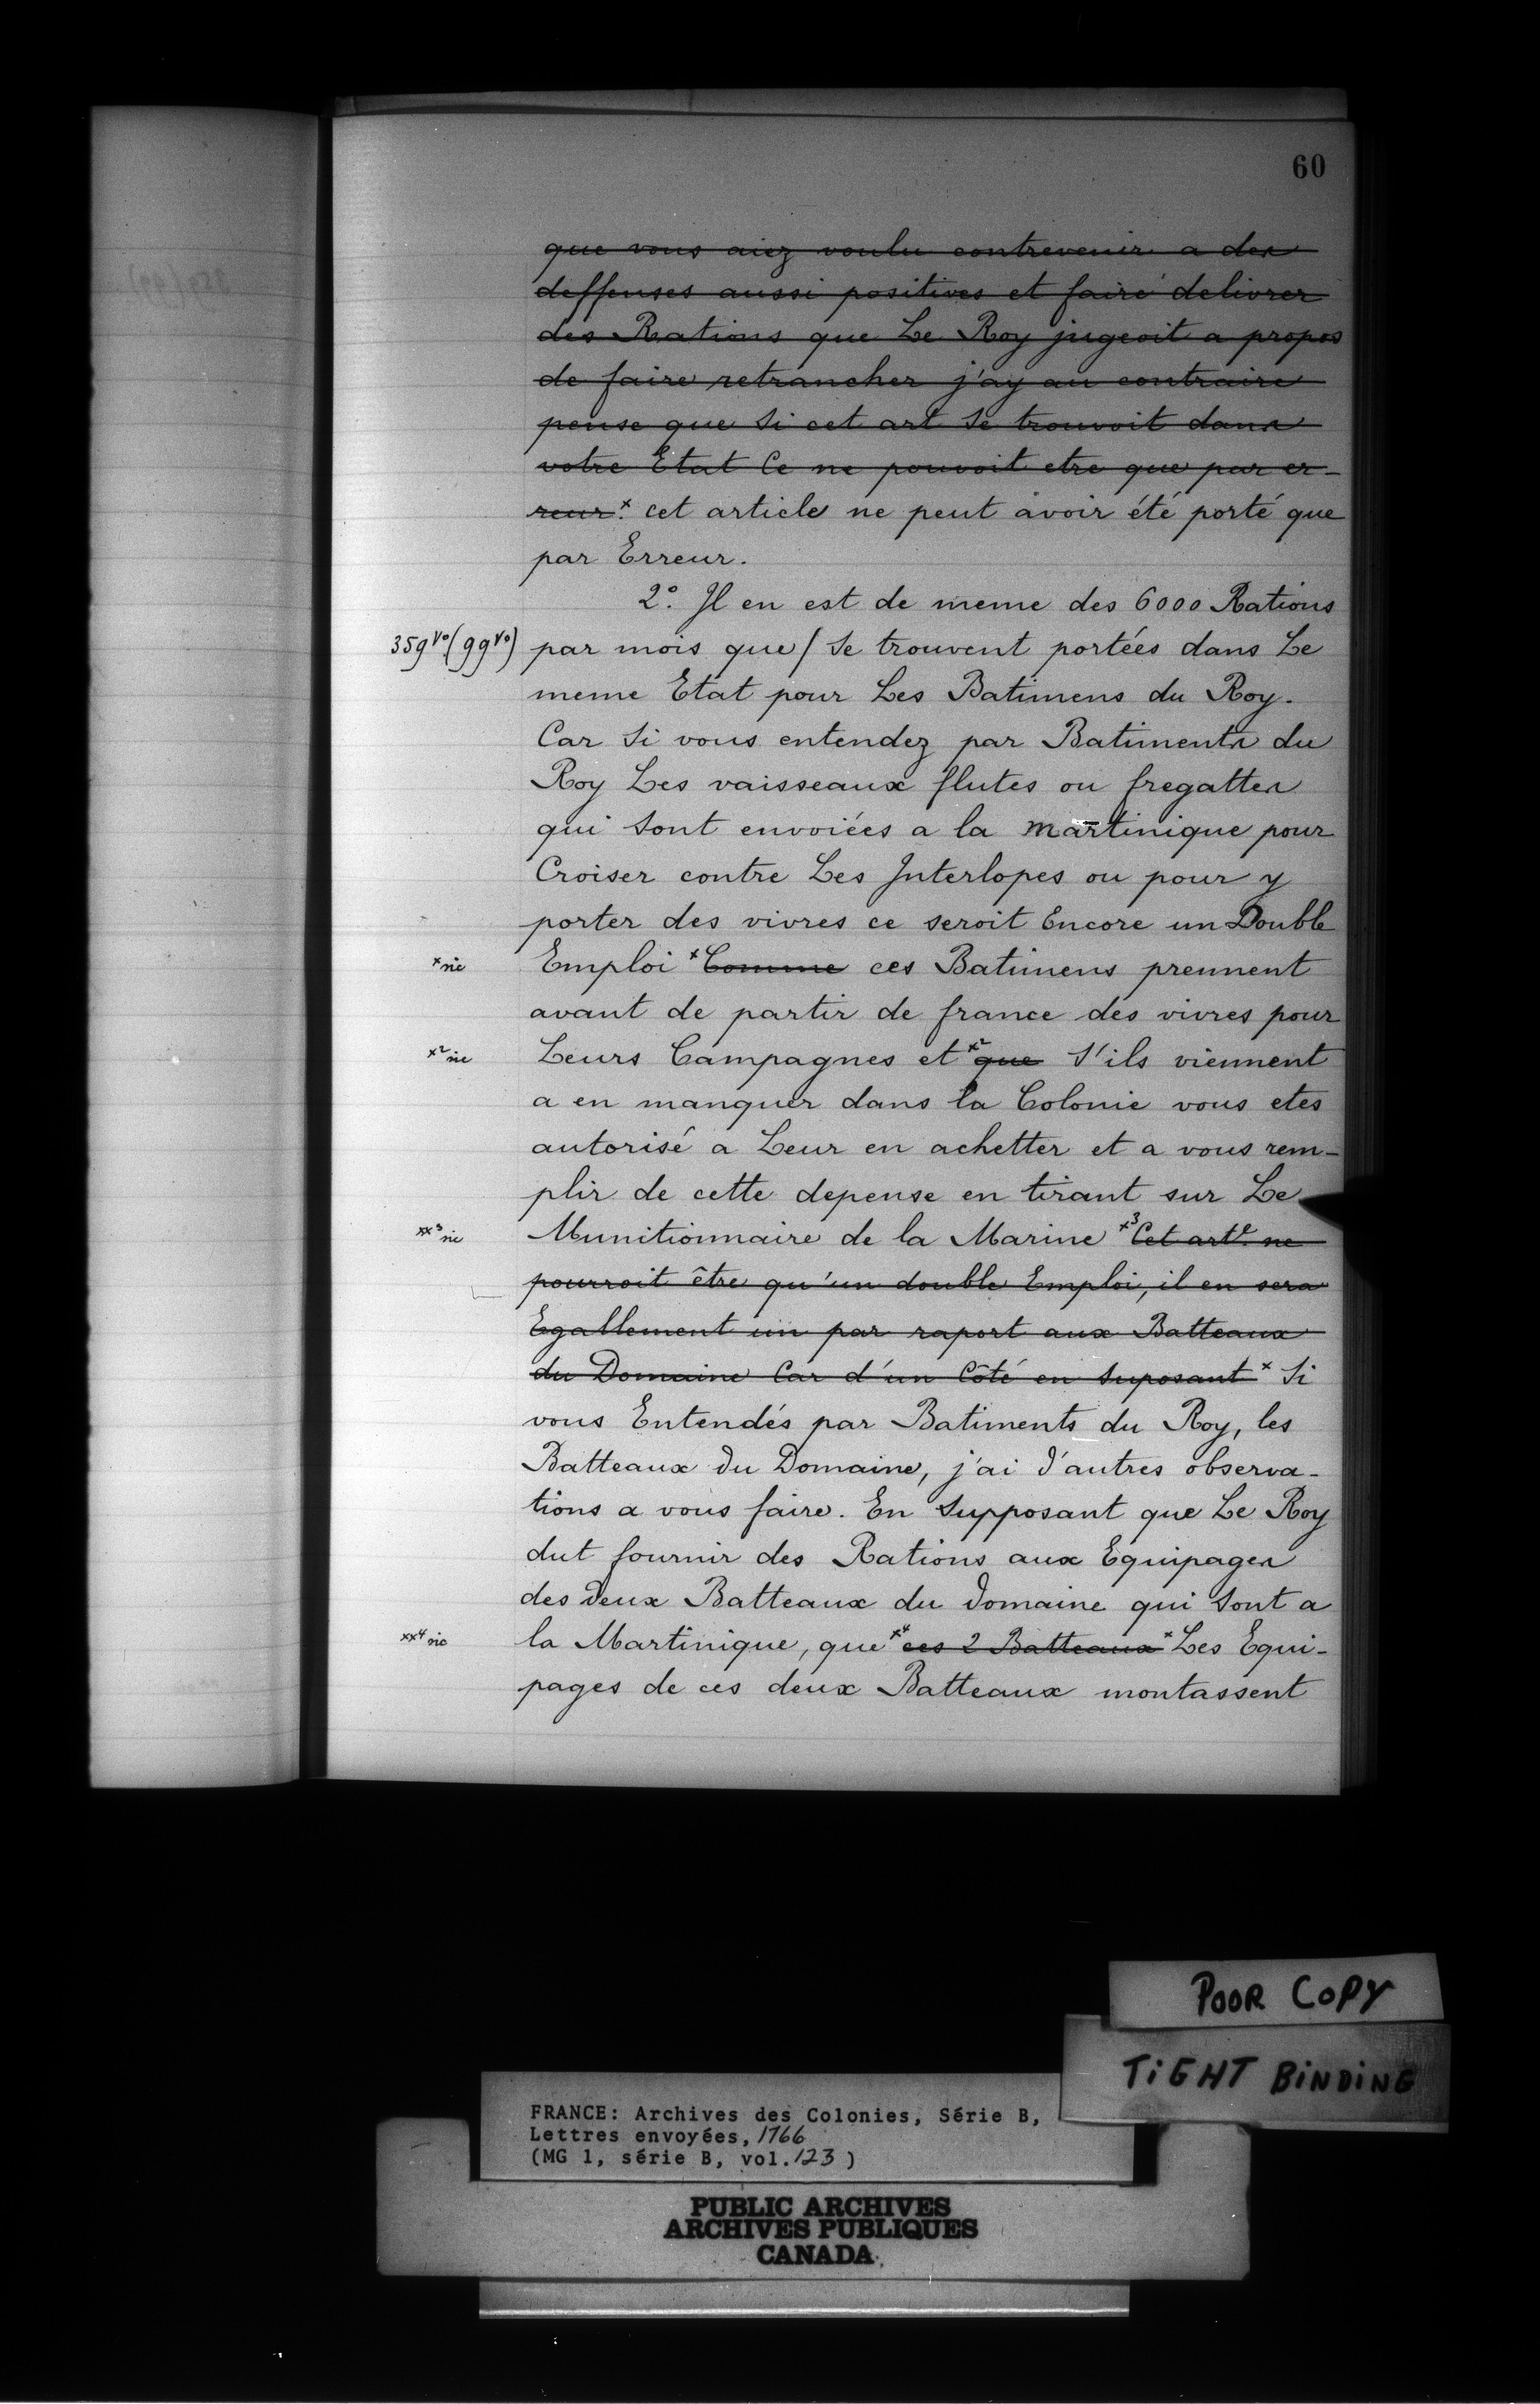 60
que vous aiez voulu contrevenir a des
deffenses aussi positives et faire delivrer
des Rations que Le Roy jugeoit a propos
de faire retrancher j'ay au contraire
pense que si cet art se trouvoit dans
votre Etat Ce ne pouvoit etre que par er-
reur.x cet article ne peut avoir été porté que
par Erreur.
2o. Il en est de meme des 6000 Rations
359vo (99vo) par mois que / se trouvent portées dans Le
meme Etat pour Les Batimens du Roy.
Car si vous entendez par Batiments du
Roy Les vaisseaux flutes ou fregattes
qui sont envoiées a la Martinique pour
Croiser contre Les Interlopes ou pour y
porter des vivres ce seroit Encore un Double
x sic Emploi x Comme ces Batimens prennent
avant de partir de france des vivres pour
x2 sic Leurs Campagnes et x2 que s'ils viennent
a en manquer dans la Colonie vous etes
autorisé a Leur en achetter et a vous rem-
plir de cette depense en tirant sur Le
xx3 sic Munitionnaire de la Marine x3 Cet arte. ne
pourroit être qu'un double Emploi, il en sera
Egallement un par raport aux Batteaux
du Domaine Car d'un Côté en suposant x Si
vous Entendés par Batiments du Roy, les
Batteaux du Domaine, j'ai d'autres observa-
tions a vous faire. En supposant que Le Roy
dut fournir des Rations aux Equipages
des deux Batteaux du domaine qui sont a
xx4 sic la Martinique, que x4 ces 2 Batteaux x Les Equi-
pages de ces deux Batteaux montassent
POOR COPY
TIGHT BINDING
FRANCE: Archives des Colonies, Série B,
Lettres envoyées, 1766
(MG 1, série B, vol. 123 )
PUBLIC ARCHIVES
ARCHIVES PUBLIQUES
CANADA